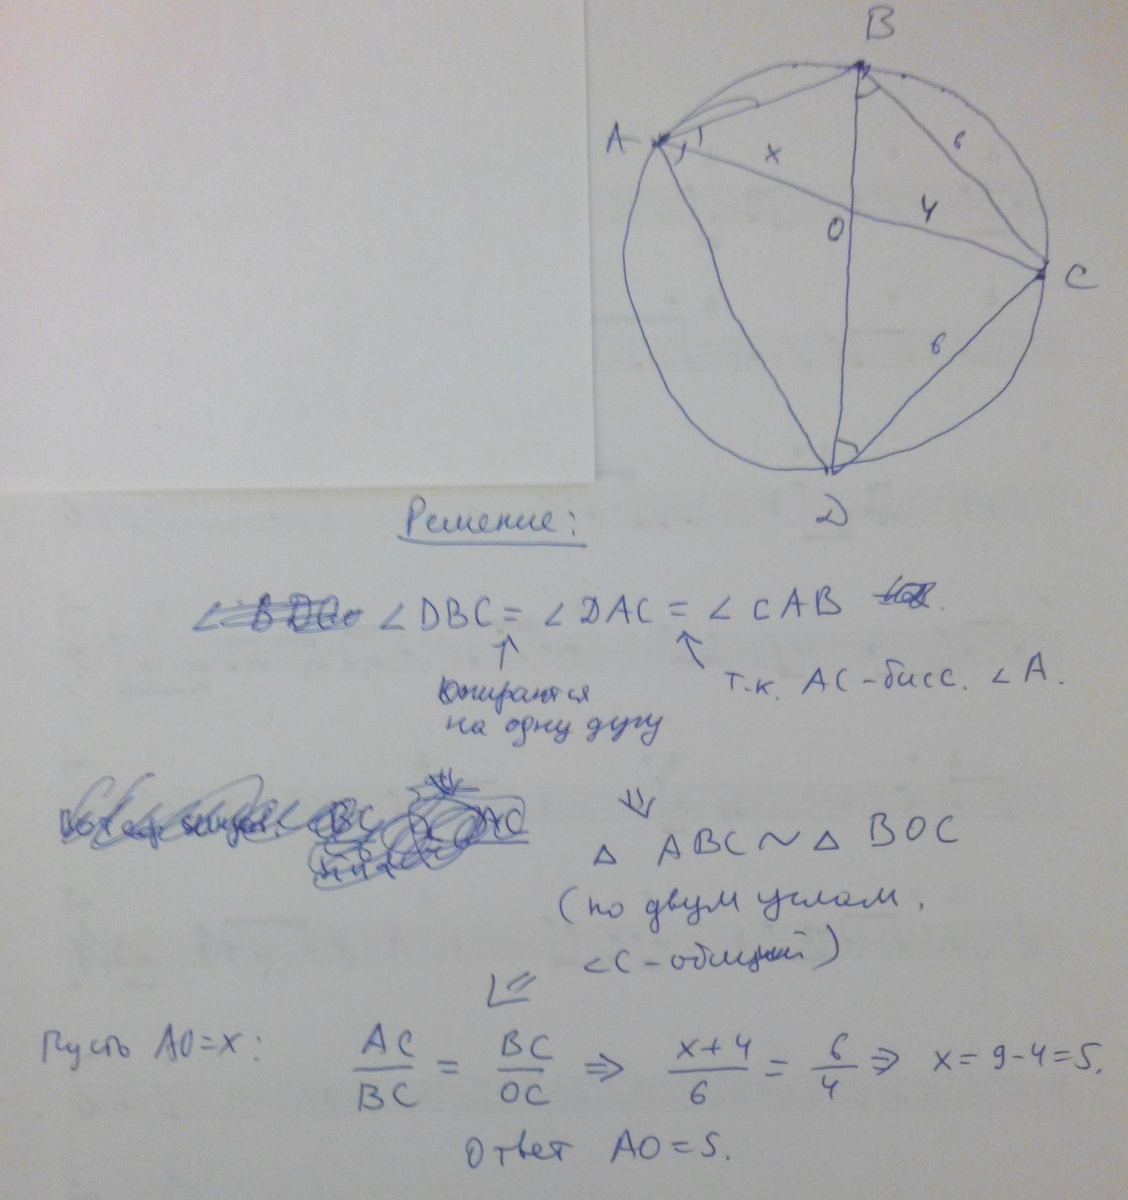 B
A
x
6
4
O
C
6
D
Решение:
∠DBC = ∠DAC = ∠CAB
Опираются
на одну дугу
т.к. AC - бисс. ∠A.
⇓
△ ABC ~ △ BOC
(по двум углам.
∠C - общий)
⇙
Пусть AO = x: AC/BC = BC/OC ⇒ x+4/6 = 6/4 ⇒ x = 9-4=5.
Ответ AO = 5.